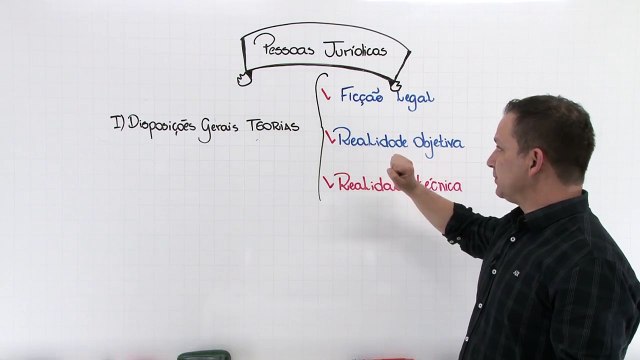 Pessoas Jurídicas
I) Disposições Gerais TEORIAS
Ficção Legal
Realidade Objetiva
Realidade técnica